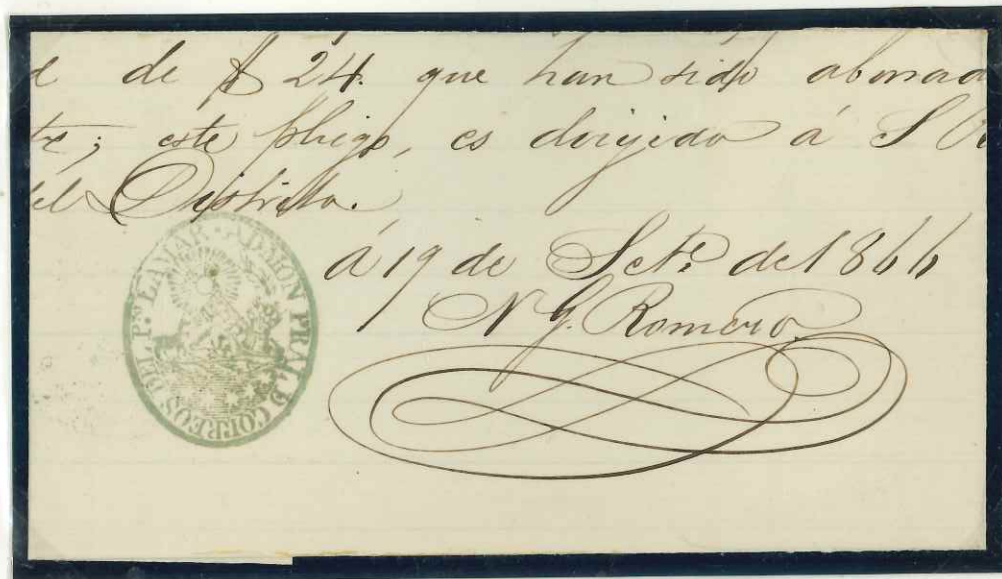 de $ 24. que han sido abonad
te; este pliego, es dirijido á S
del Distrito.
á 19 de Sete. de 1866
N G. Romero
ADMION PRAL D CORREOS DEL P.TO LAMAR